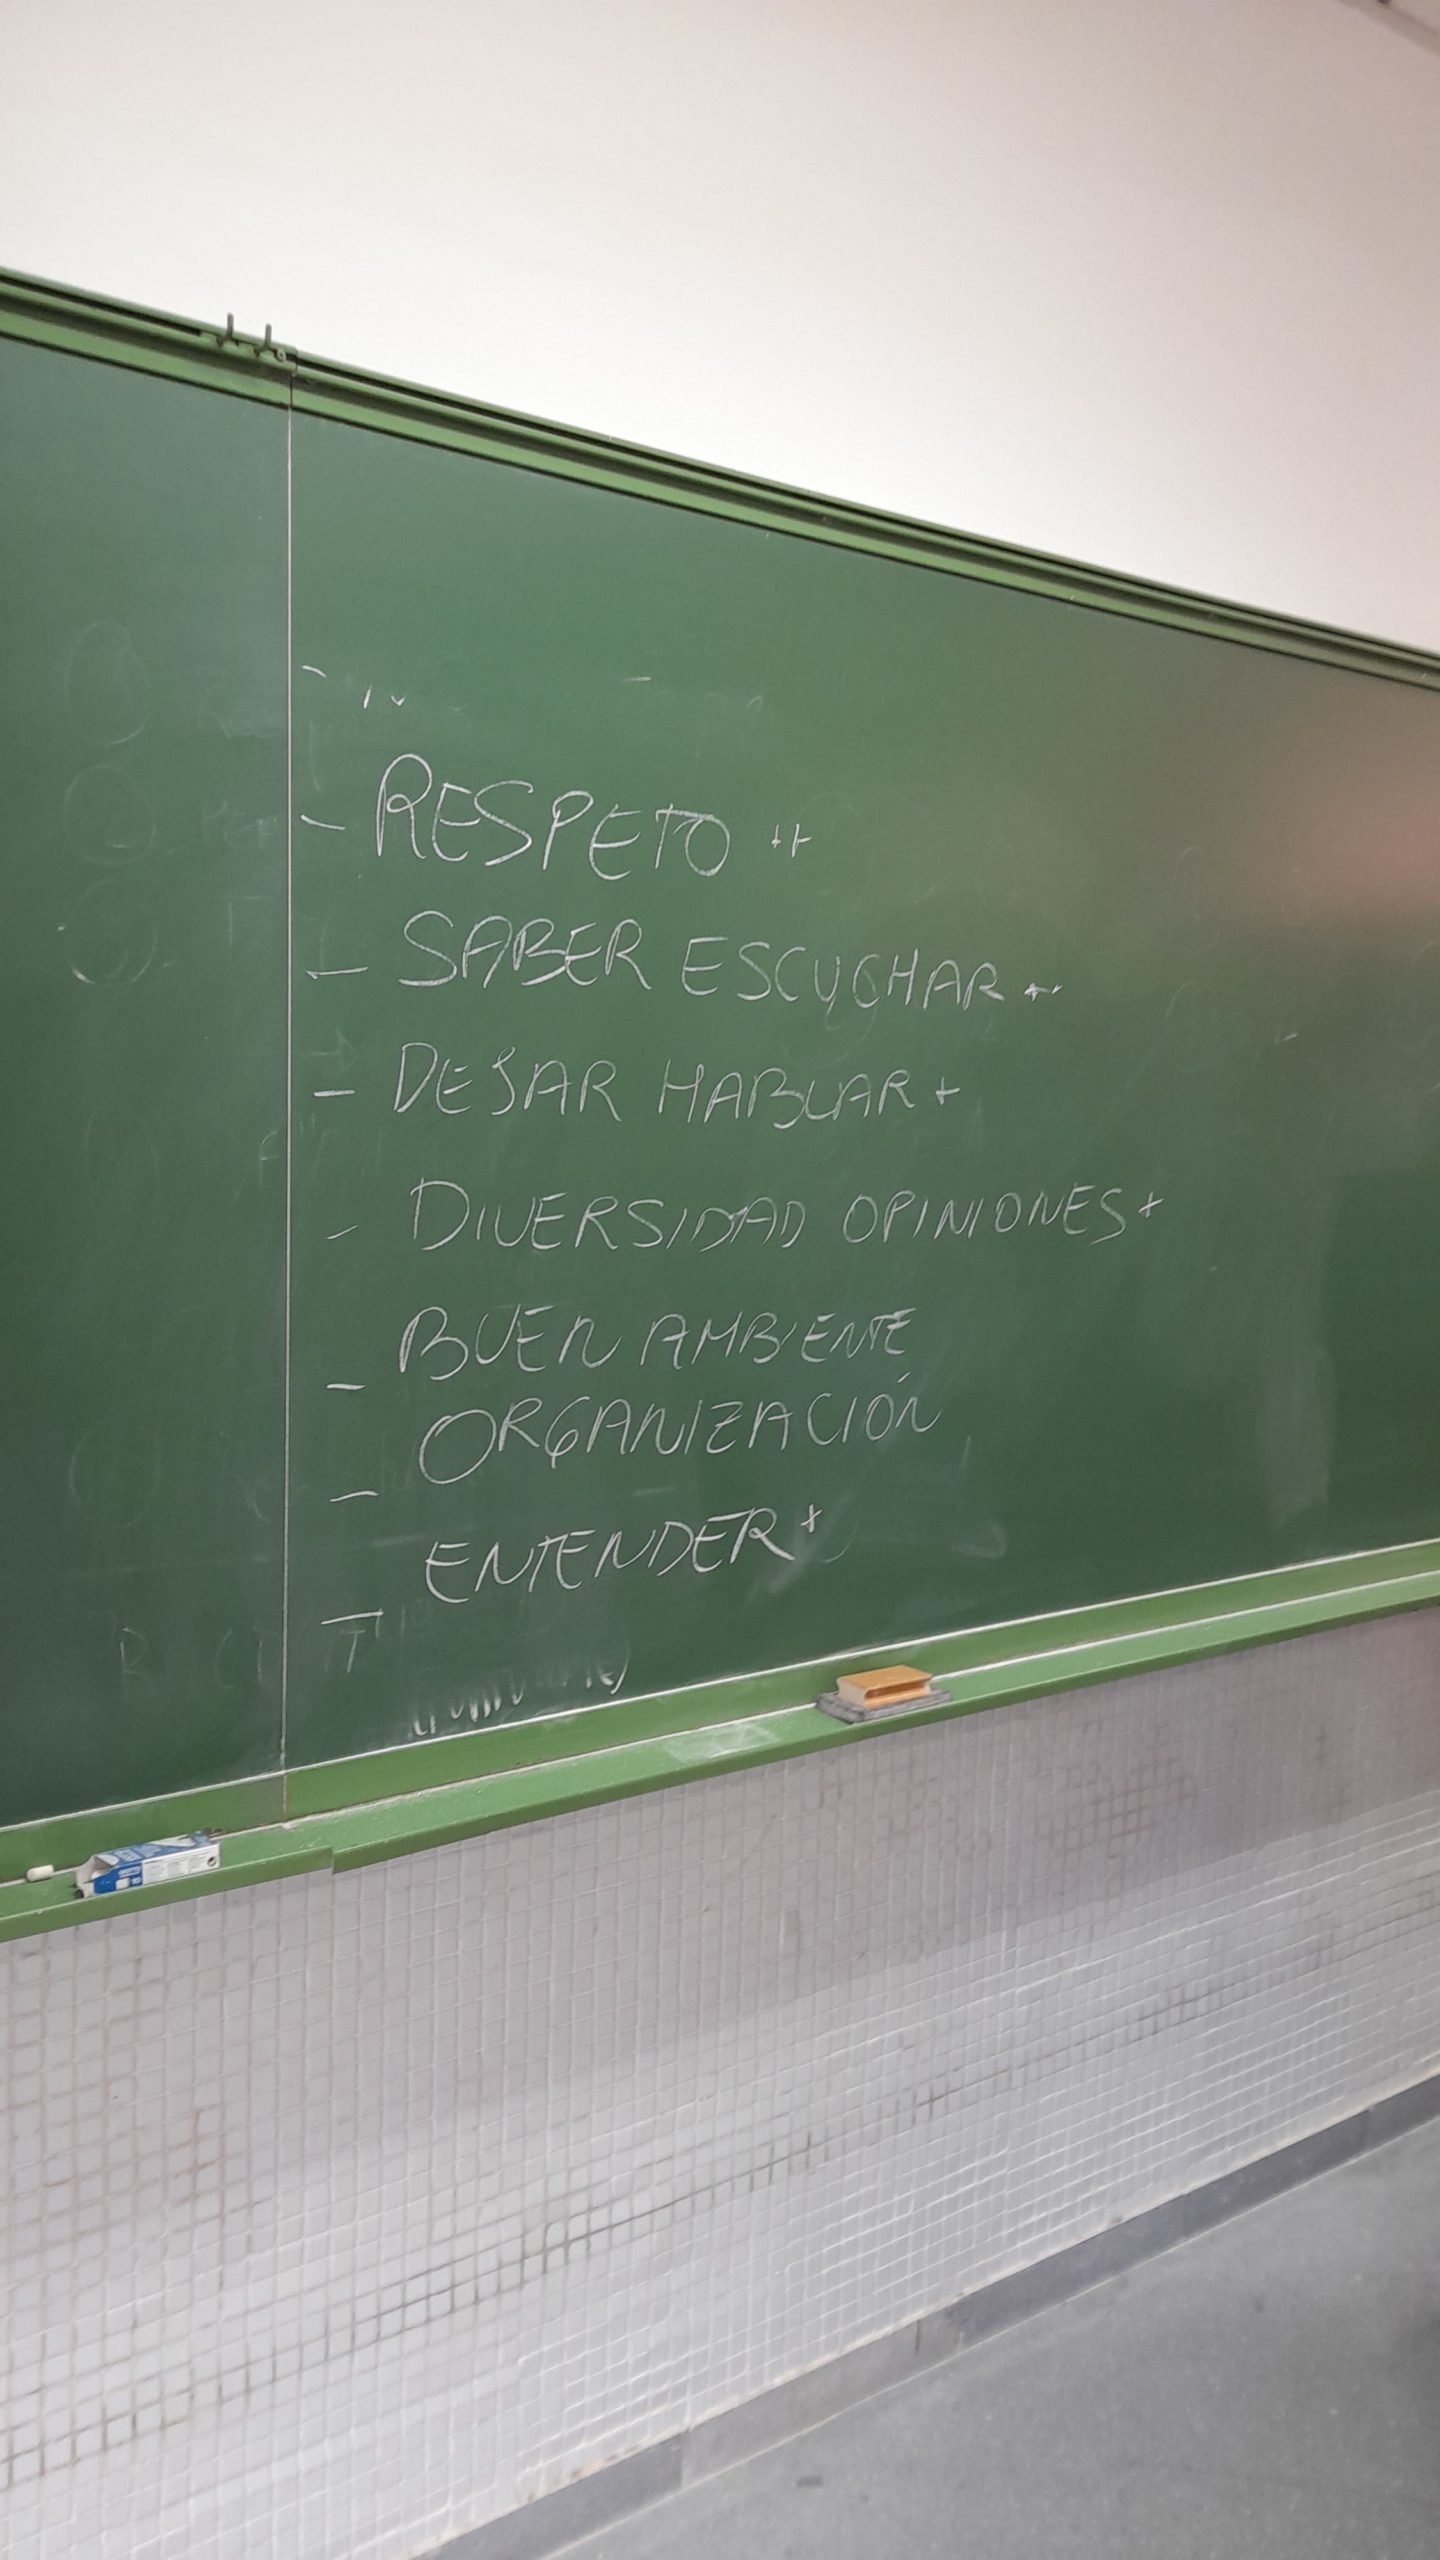 - RESPETO ++
- SABER ESCUCHAR ++
- DEJAR HABLAR +
- DIVERSIDAD OPINIONES +
- BUEN AMBIENTE
- ORGANIZACIÓN
- ENTENDER +